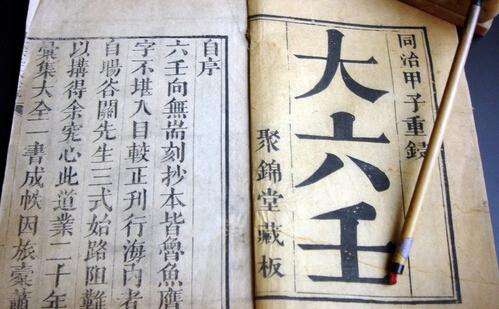 同治甲子重
大六壬
聚錦堂藏板
自序
六壬向無耑刻抄本皆魯魚
字不堪入目較正刊行海內者
自塲谷關先生三式始路阻難
以搆得余究心此道業二十年
彙集大全一書成帙因旅橐蕭